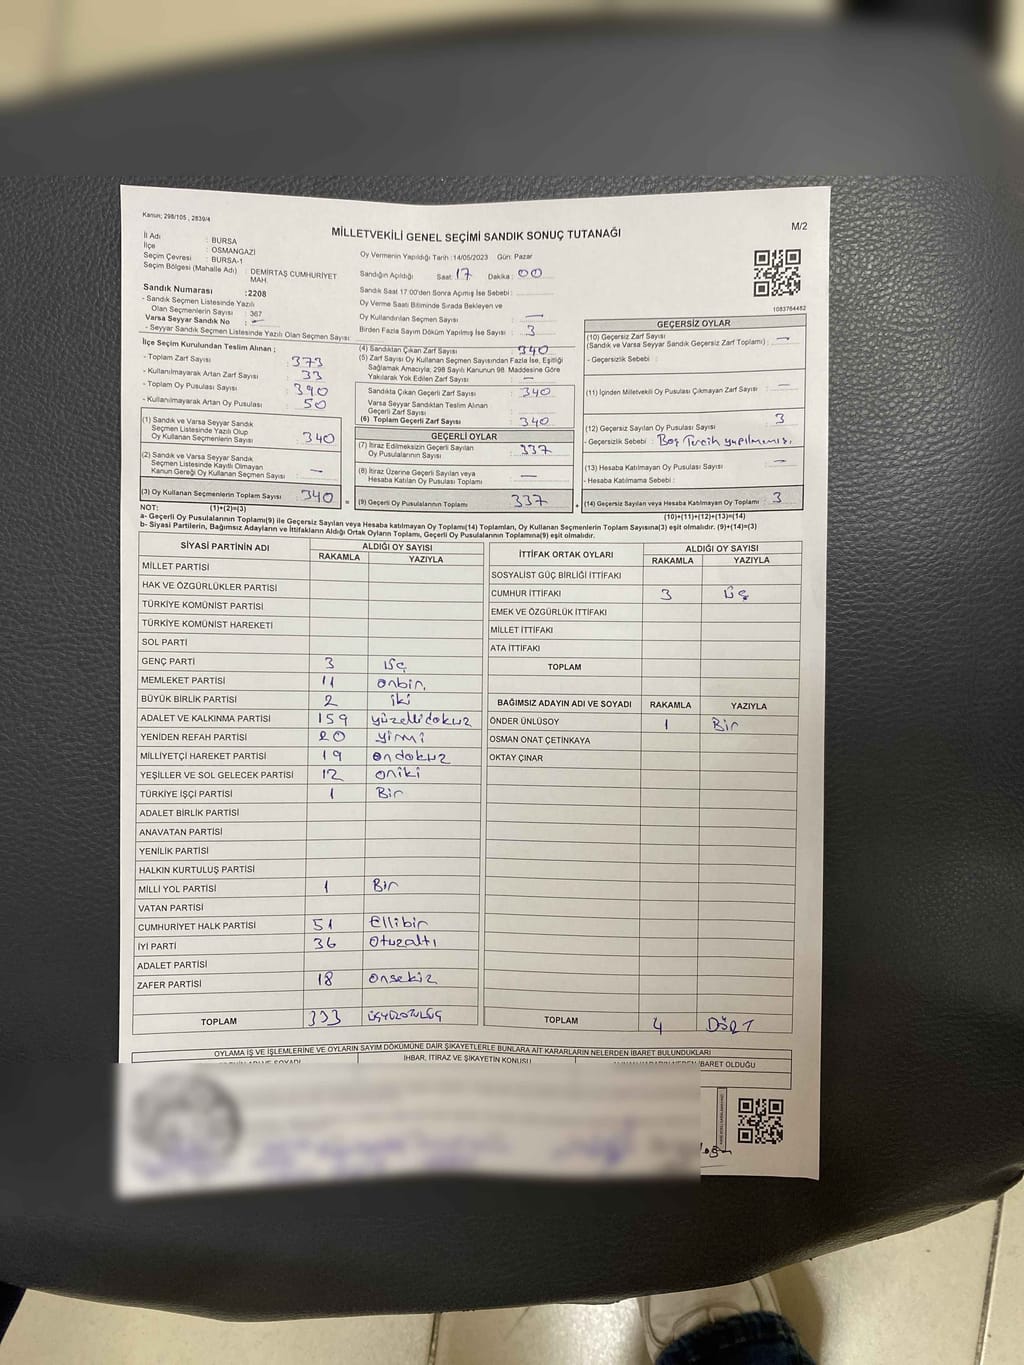 Kanun; 298/105 , 2839/4
MİLLETVEKİLİ GENEL SEÇİMİ SANDIK SONUÇ TUTANAĞI
M/2
İl Adı : BURSA
İlçe : OSMANGAZİ
Seçim Çevresi : BURSA-1
Seçim Bölgesi (Mahalle Adı) : DEMİRTAŞ CUMHURİYET MAH.
Sandık Numarası : 2208
- Sandık Seçmen Listesinde Yazılı
Olan Seçmenlerin Sayısı : 367
Varsa Seyyar Sandık No : —
- Seyyar Sandık Seçmen Listesinde Yazılı Olan Seçmen Sayısı
Oy Vermenin Yapıldığı Tarih :14/05/2023 Gün: Pazar
Sandığın Açıldığı Saat : 17 Dakika : 00
Sandık Saat 17:00'den Sonra Açımış İse Sebebi :
Oy Verme Saati Bitiminde Sırada Bekleyen ve
Oy Kullandırılan Seçmen Sayısı : —
Birden Fazla Sayım Döküm Yapılmış İse Sayısı : 3
1083764482
İlçe Seçim Kurulundan Teslim Alınan ;
- Toplam Zarf Sayısı : 373
- Kullanılmayarak Artan Zarf Sayısı : 33
- Toplam Oy Pusulası Sayısı : 390
- Kullanılmayarak Artan Oy Pusulası : 50
(1) Sandık ve Varsa Seyyar Sandık
Seçmen Listesinde Yazılı Olup
Oy Kullanan Seçmenlerin Sayısı : 340
(2) Sandık ve Varsa Seyyar Sandık
Seçmen Listesinde Kayıtlı Olmayan
Kanun Gereği Oy Kullanan Seçmen Sayısı : —
(3) Oy Kullanan Seçmenlerin Toplam Sayısı : 340
(1)+(2)=(3)
(4) Sandıktan Çıkan Zarf Sayısı : 340
(5) Zarf Sayısı Oy Kullanan Seçmen Sayısından Fazla İse, Eşitliği
Sağlamak Amacıyla; 298 Sayılı Kanunun 98. Maddesine Göre
Yakılarak Yok Edilen Zarf Sayısı : —
Sandıkta Çıkan Geçerli Zarf Sayısı : 340
Varsa Seyyar Sandıktan Teslim Alınan
Geçerli Zarf Sayısı :
(6) Toplam Geçerli Zarf Sayısı : 340
GEÇERLİ OYLAR
(7) İtiraz Edilmeksizin Geçerli Sayılan
Oy Pusulalarının Sayısı : 337
(8) İtiraz Üzerine Geçerli Sayılan veya
Hesaba Katılan Oy Pusulaları Toplamı : —
(9) Geçerli Oy Pusulalarının Toplamı : 337
GEÇERSİZ OYLAR
(10) Geçersiz Zarf Sayısı
(Sandık ve Varsa Seyyar Sandık Geçersiz Zarf Toplamı) : —
- Geçersizlik Sebebi :
(11) İçinden Milletvekili Oy Pusulası Çıkmayan Zarf Sayısı : —
(12) Geçersiz Sayılan Oy Pusulası Sayısı : 3
- Geçersizlik Sebebi : Boş Tercih yapılmamış.
(13) Hesaba Katılmayan Oy Pusulası Sayısı : —
- Hesaba Katılmama Sebebi :
(14) Geçersiz Sayılan veya Hesaba Katılmayan Oy Toplamı : 3
(10)+(11)+(12)+(13)=(14)
NOT:
a- Geçerli Oy Pusulalarının Toplamı(9) ile Geçersiz Sayılan veya Hesaba katılmayan Oy Toplamı(14) Toplamları, Oy Kullanan Seçmenlerin Toplam Sayısına(3) eşit olmalıdır. (9)+(14)=(3)
b- Siyasi Partilerin, Bağımsız Adayların ve İttifakların Aldığı Ortak Oyların Toplamı, Geçerli Oy Pusulalarının Toplamına(9) eşit olmalıdır.
SİYASİ PARTİNİN ADI ALDIĞI OY SAYISI
RAKAMLA YAZIYLA
MİLLET PARTİSİ
HAK VE ÖZGÜRLÜKLER PARTİSİ
TÜRKİYE KOMÜNİST PARTİSİ
TÜRKİYE KOMÜNİST HAREKETİ
SOL PARTİ
GENÇ PARTİ 3 üç
MEMLEKET PARTİSİ 11 onbir.
BÜYÜK BİRLİK PARTİSİ 2 iki
ADALET VE KALKINMA PARTİSİ 159 yüzellidokuz
YENİDEN REFAH PARTİSİ 20 yirmi
MİLLİYETÇİ HAREKET PARTİSİ 19 ondokuz
YEŞİLLER VE SOL GELECEK PARTİSİ 12 oniki
TÜRKİYE İŞÇİ PARTİSİ 1 Bir
ADALET BİRLİK PARTİSİ
ANAVATAN PARTİSİ
YENİLİK PARTİSİ
HALKIN KURTULUŞ PARTİSİ
MİLLİ YOL PARTİSİ 1 Bir
VATAN PARTİSİ
CUMHURİYET HALK PARTİSİ 51 Ellibir
İYİ PARTİ 36 Otuzaltı
ADALET PARTİSİ
ZAFER PARTİSİ 18 onsekiz
TOPLAM 333
İTTİFAK ORTAK OYLARI ALDIĞI OY SAYISI
RAKAMLA YAZIYLA
SOSYALİST GÜÇ BİRLİĞİ İTTİFAKI
CUMHUR İTTİFAKI 3 üç
EMEK VE ÖZGÜRLÜK İTTİFAKI
MİLLET İTTİFAKI
ATA İTTİFAKI
TOPLAM
BAĞIMSIZ ADAYIN ADI VE SOYADI RAKAMLA YAZIYLA
ÖNDER ÜNLÜSOY 1 Bir
OSMAN ONAT ÇETİNKAYA
OKTAY ÇINAR
TOPLAM 4 DÖRT
OYLAMA İŞ VE İŞLEMLERİNE VE OYLARIN SAYIM DÖKÜMÜNE DAİR ŞİKAYETLERLE BUNLARA AİT KARARLARIN NELERDEN İBARET BULUNDUKLARI
İHBAR, İTİRAZ VE ŞİKAYETİN KONUSU
İBARET OLDUĞU